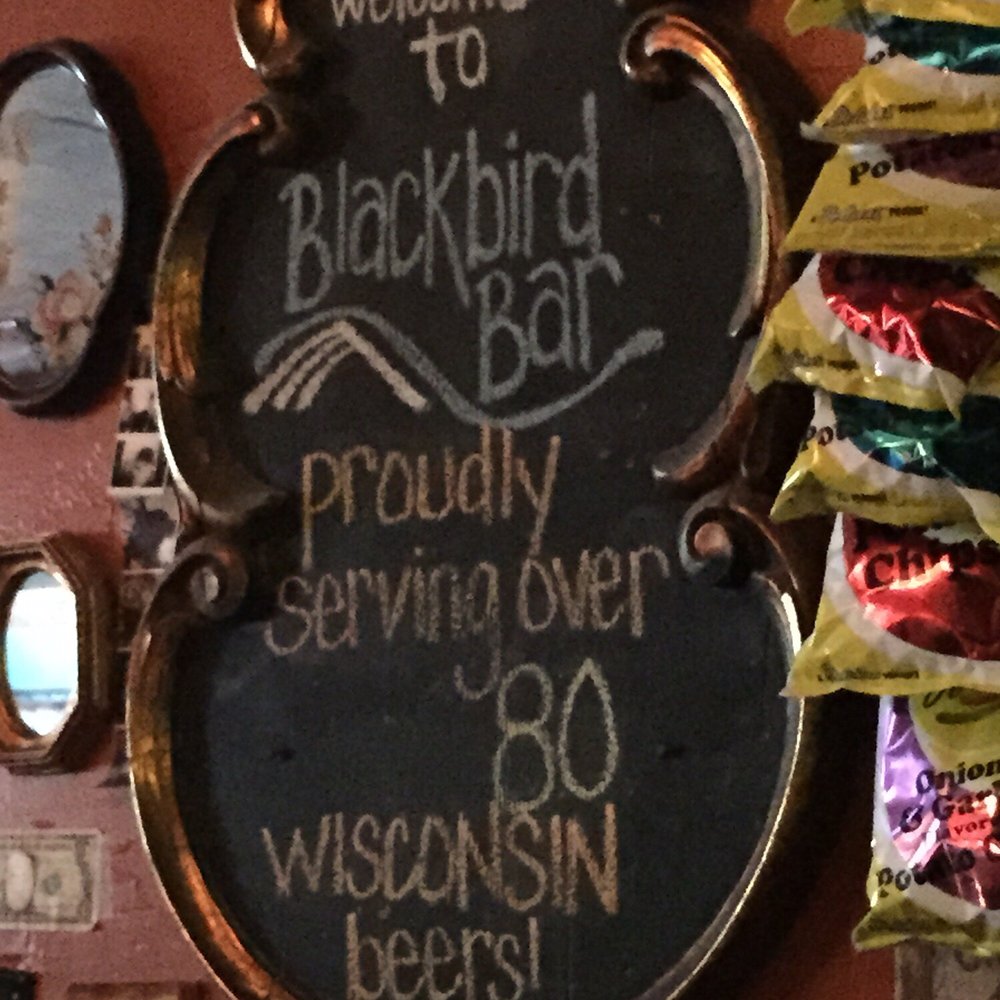 welcome
to
Blackbird
Bar
proudly
serving over
80
WISCONSIN
beers!
Chips
Onion
& Garlic
Potato